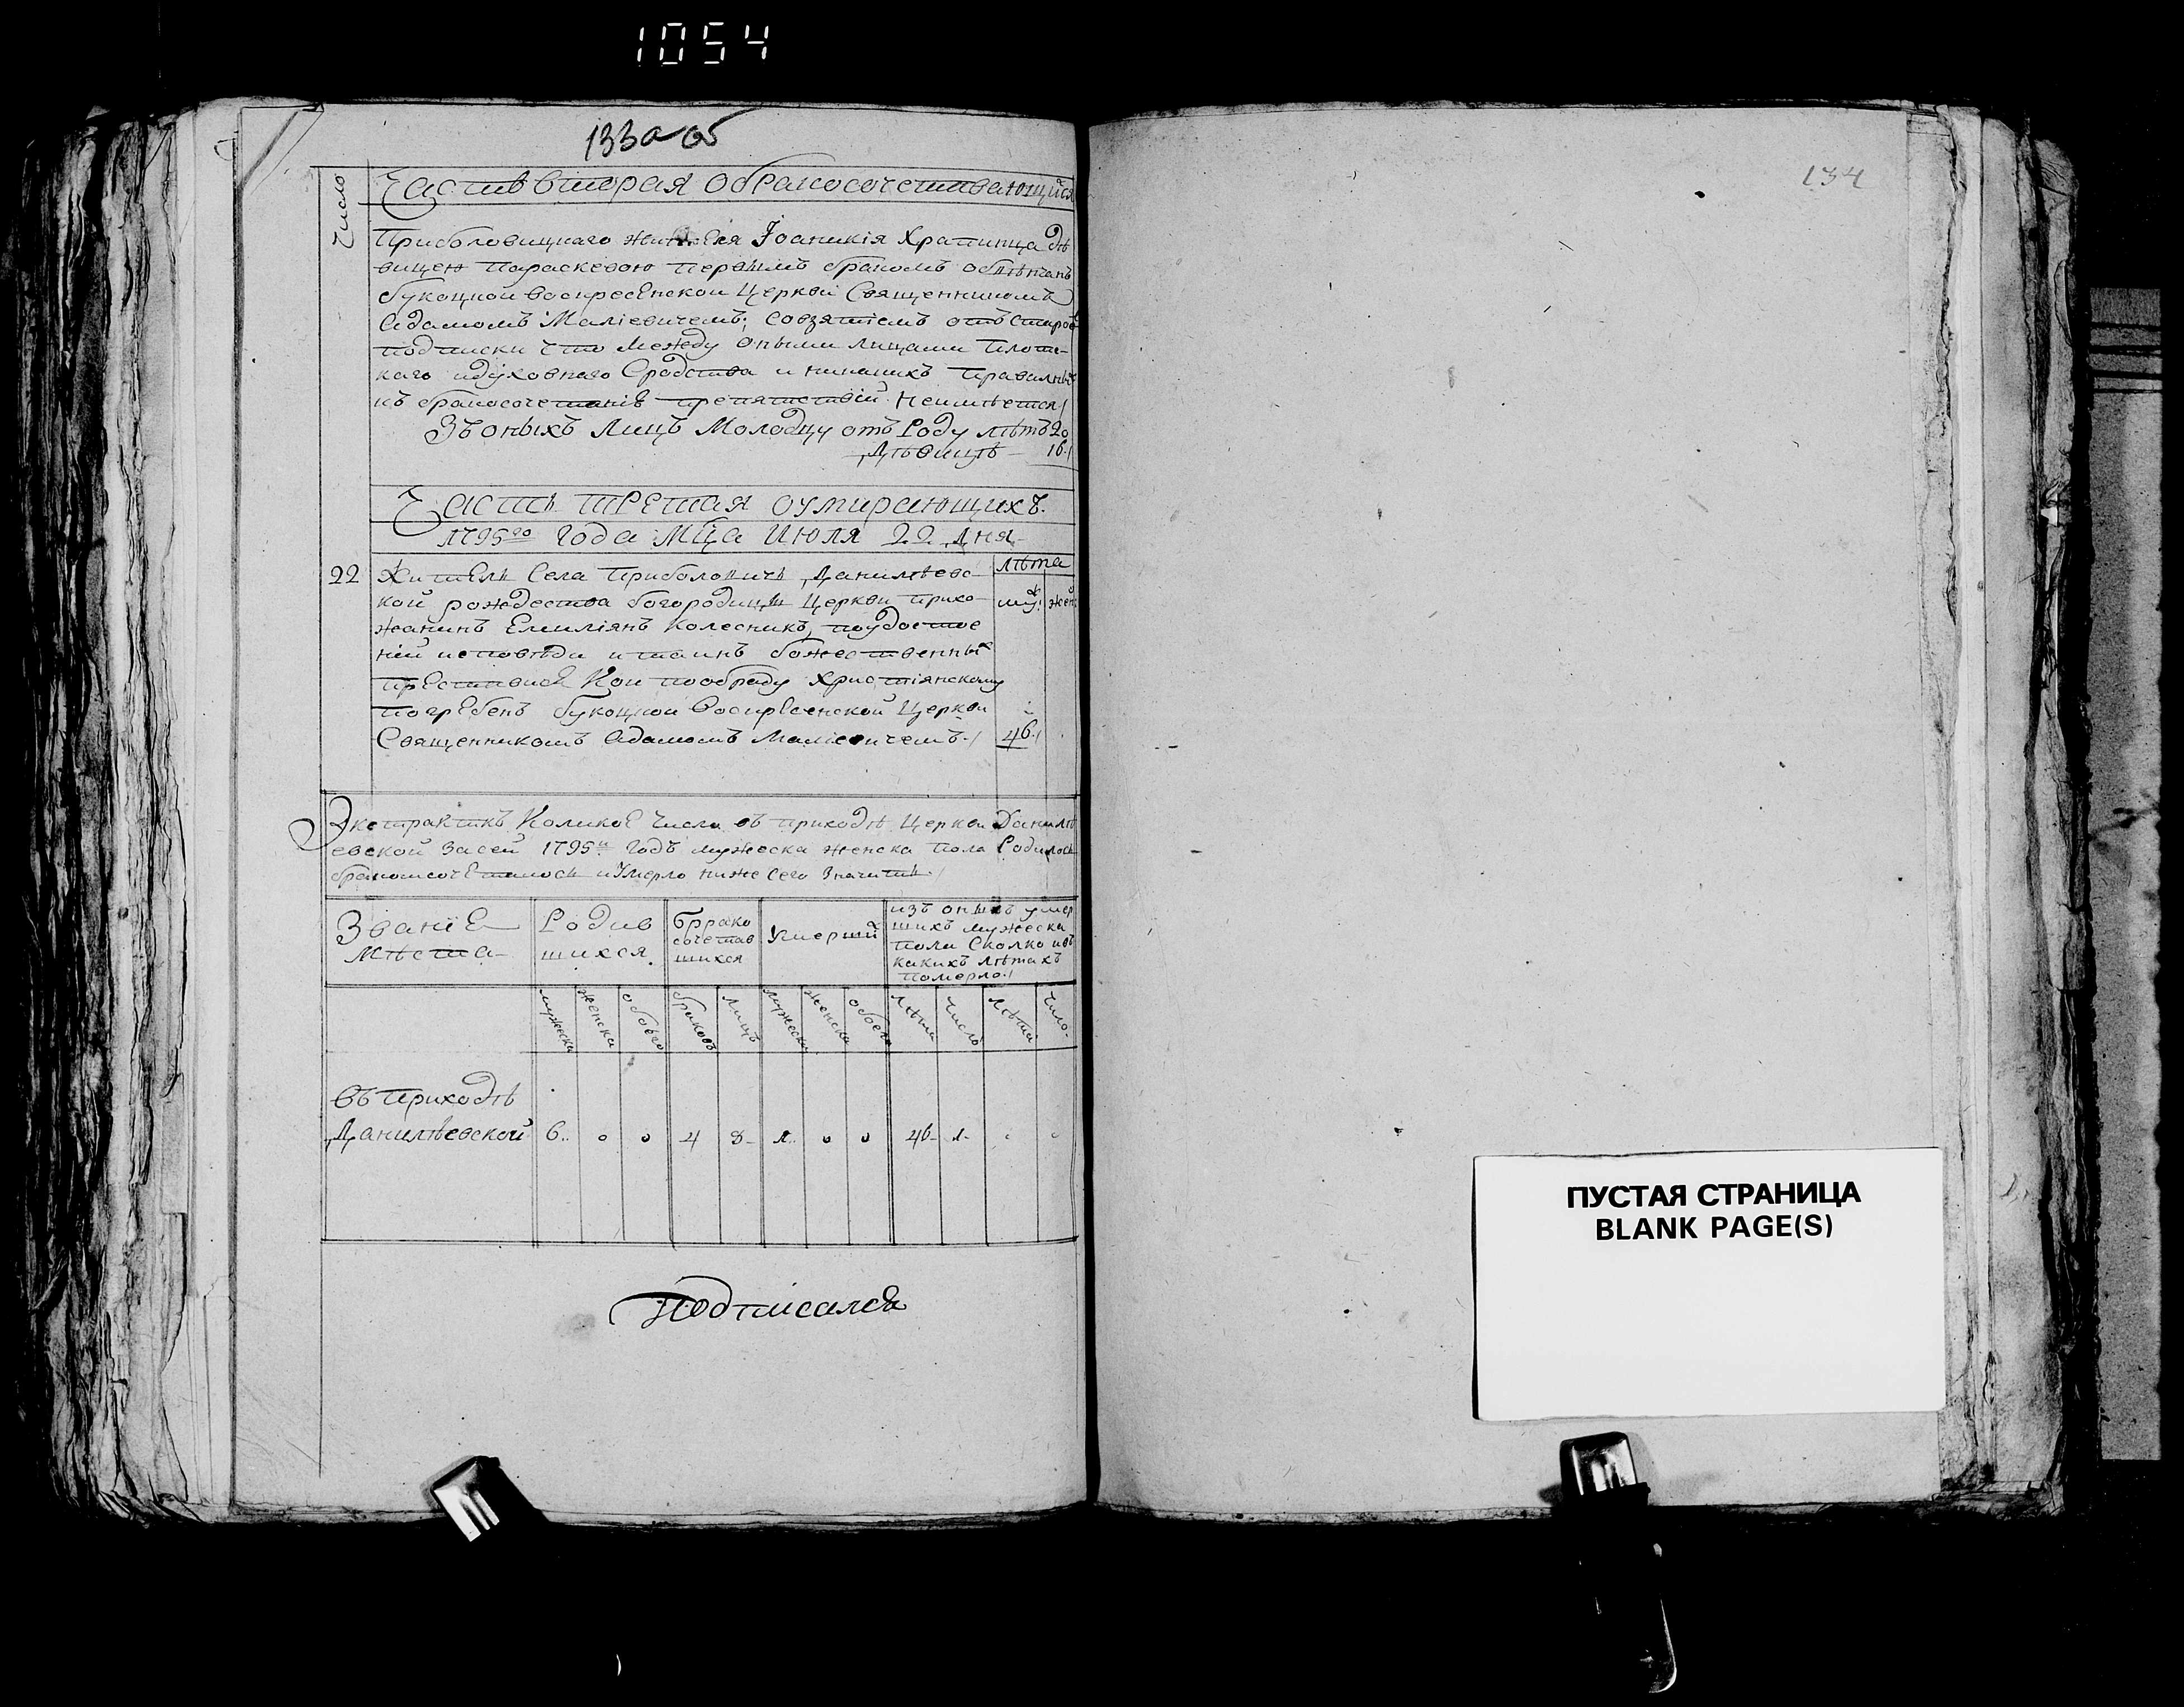 1054
133а об
134
Число
Часть вторая обракосочетивающийся
Приболовицкаго жителя Іоаникія Храпинца дѣ
вицею Параскевою первымъ бракомъ обвѣнчанъ
букоцкой воскресенской Церкви Священникомъ
Адамомъ Маліевичемъ; совзятіемъ отъ Старо
подписки что между оными лицами плоти-
каго идуховнаго Сродства и никакихъ правилны
къ бракосочетаніе препятствій Неимѣется /
Зъ оныхъ Лицъ Молодцу отъ Роду лѣтъ 20
Дѣвицѣ — 16 /
Часть третая оумирающихъ.
1795го года Мца Июля 22 дня
22 Житель Села Приболовичъ Данилѣевс-
кой рождества богородицы Церкви прихо-
жанинъ Емиліянъ Колесникъ, поудостое
ніи исповѣди итаинъ божественныхъ
преставися Кои пообряду Христіянскому
погребенъ букоцкой Воскресенской Церкви
Священникомъ Адамомъ Маліевичемъ /
лѣта
муж жен
46 /
Экстрактъ Коликое Число въ приходѣ Церкви Данилѣ
евской Засей 1795й годъ мужеска женска пола Родилось
бракосочеталось иУмерло ниже сего Значитъ /
Званіе Мѣста
Родив шихся
Брако сочетав шихся
Умерших
изъ оныхъ умер
шихъ мужеска
пола Сколко ивъ
какихъ лѣтахъ
померло /
мужеска женска обоего браковъ лицъ мужеска женска обоего Лѣта Число Лѣта Число
Въ Приходѣ
Данилѣевской 6 0 0 4 8 1 0 0 46 1
Подписался
ПУСТАЯ СТРАНИЦА
BLANK PAGE(S)